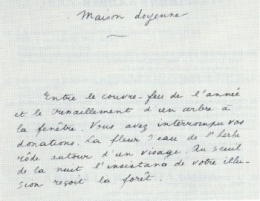 Maison doyenne
Entre le couvre-feu de l'année
et le renaillement d'un arbre à
la fenêtre. Vous avez interrompu vos
donations. La fleur d'eau de l'herbe
rôde autour d'un visage. Au seuil
de la nuit l'insistance de votre illu-
sion reçoit la forêt.